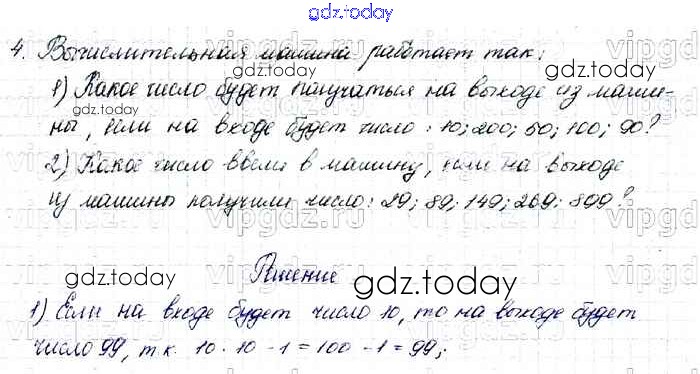 gdz.today
4. Вычислительная машина работает так:
1) Какое число будет получаться на выходе из маши-
ны, если на входе будет число: 10; 200; 50; 100; 90?
2) Какое число ввели в машину, если на выходе
из машины получили число: 29; 89; 149; 269; 899?
Решение
1) Если на входе будет число 10, то на выходе будет
число 99, т.к. 10 · 10 - 1 = 100 - 1 = 99;
gdz.today
gdz.today
gdz.today
gdz.today
gdz.today